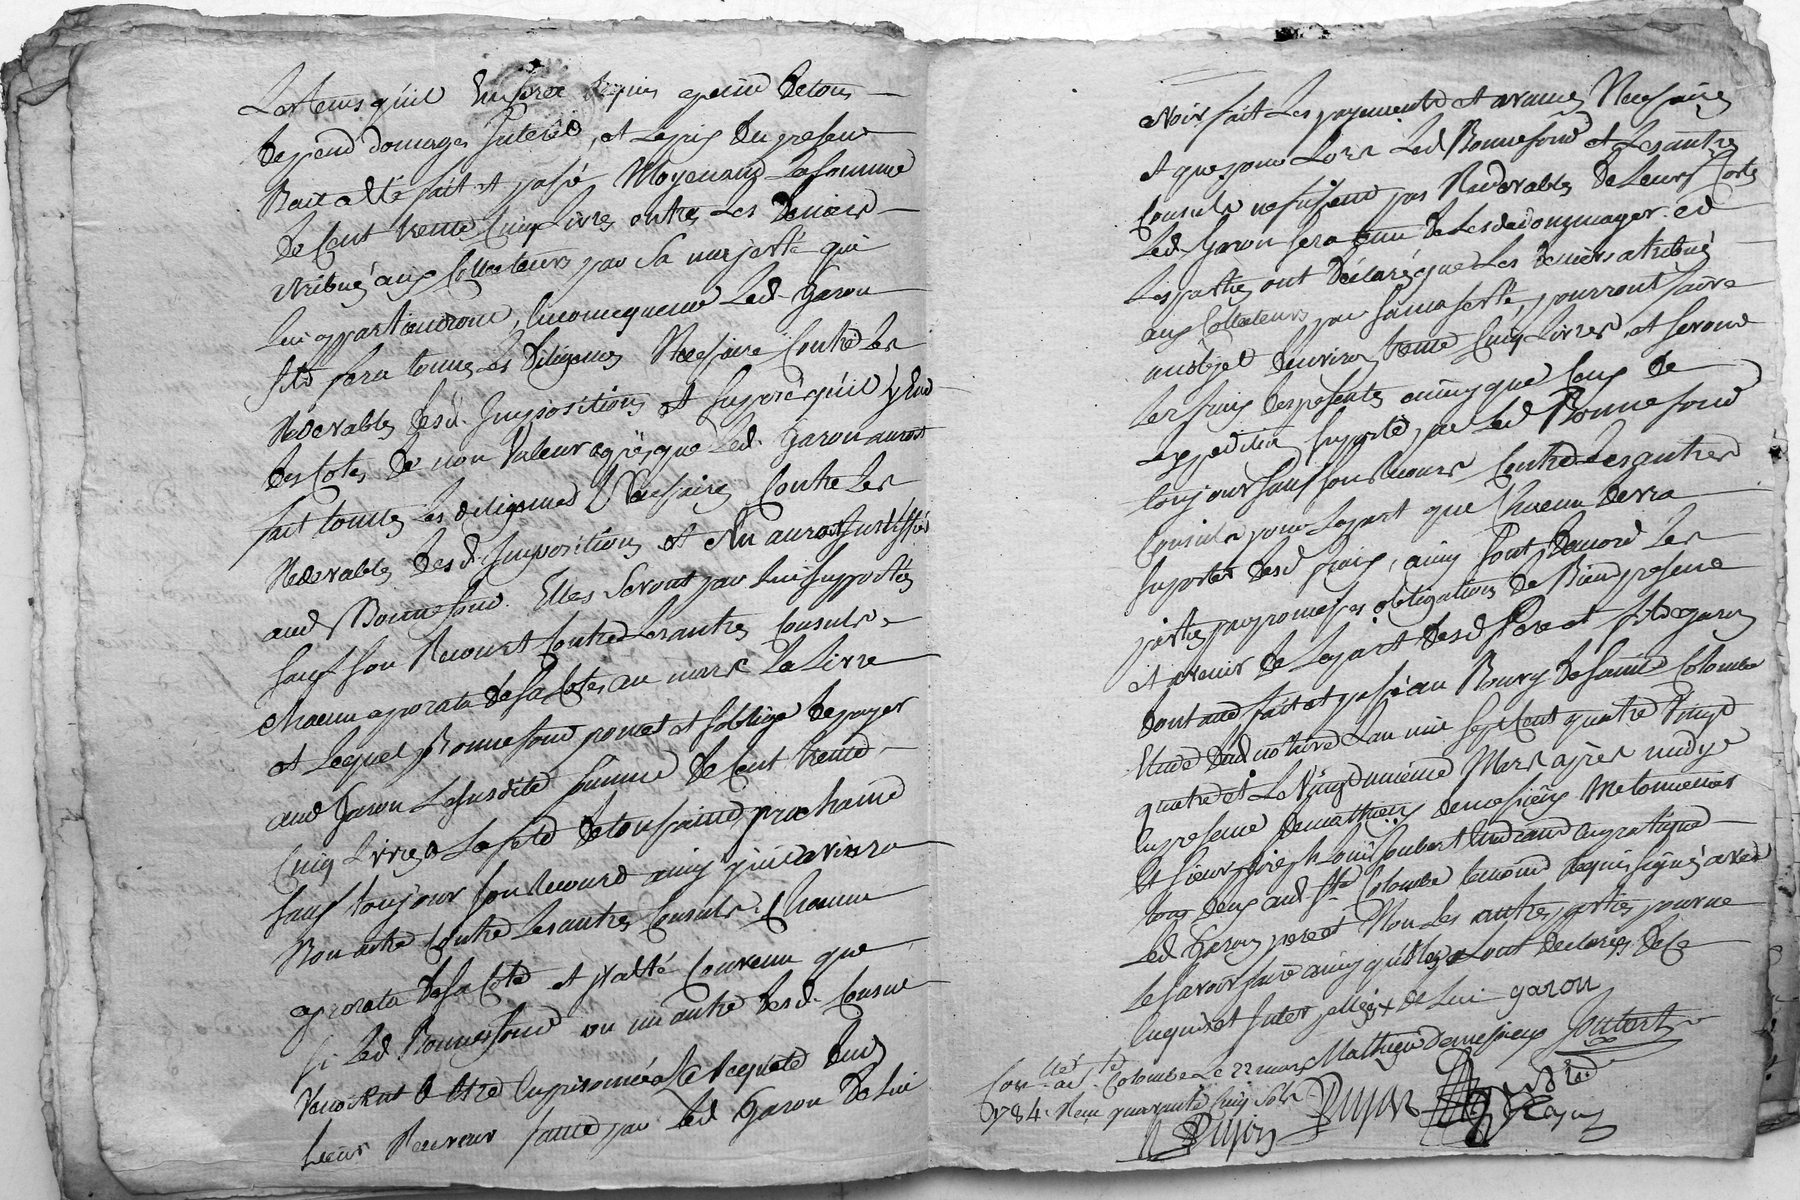 Les tems qu'il en sera requis a peine de tous
depend domages interéts, et le prix du present
Bail a été fait et passé Moyenand La somme
de Cent trente Cinq Livres outre Les deniers
atribué aux Collecteurs par Sa majesté qui
lui appartiendront, en consequence Led. Garon
fils fera toutes les diligences Necessaire Contre Les
Redevables desd. Impositions et supposé qu'il y eut
des Cotes de non Valeur apres que Led. Garon auroit
fait touttes Les diligences Necessaires Contre Les
Redevables desd. Impositions et En auroit Justiffié
aud Bonnefond. Elles Seront par lui supportées
sauf son Recourt Contre Les autres Consuls
chacun aporata de sa Cotte au marc La Livre
et Lequel Bonnefond promet et soblige de payer
aud Garon La susdite somme de Cent trente
Cinq Livres a La fete de toussaint prochaine
sauf toujour son Recourd ainsy qu'il avisera
Bon estre Contre Les autres Consuls Chacun
aporata de sa Cote et a été Convenu que
si Led Bonnefond ou un autre desd. Consul
Venoient a Etre Enprisonnés a La Requete dud
sieur Receveur faute par Led Garon De lui
Avoir fait Les payements et avances Necessaires
et que pour Lors Led Bonnefond et Les autres
Consuls ne fussent pas Redevables de Leurs Cotte
Led. Garon sera tenu de Les dedommager. et
Les parties ont declaré que Les deniers atribué
aux Collecteurs par sa majesté, pourront faire
un objet d'environ trente Cinq Livres, et seront
Les frais des presentes ainsy que Coup de
Lexpedition supporté par Led Bonnefond
toujour sauf son Recours Contre Les autres
Consuls pour La part que Chacun devra
suporter desd frais, ainsy sont d'accord Les
parties par promesses obligations de Biens presens
et avenir de La part desd Pere et fils Garon
dont acte fait et passé au Bourg de sainte Colombe
Etude dud notaire L'an mil sept Cent quatre Vingt
quatre et Le Vingt deuxieme Mars après midy
En presence de mathieu demesieux
et sieur joseph Louis Joubert
tous deux aud Ste Colombe temoins Requis signés avec
Led Garon pere et Non Les autres parties pour ne
Le savoir faire ainsy qu'ils ont declarés de Ce
Enquis et Interpellés de Lui garon
Mathieu demesieux Joubert
Con.lé a Ste Colombe Le 22 mars
1784. Reçu quarante Cinq Sols
Pujon
Pujon